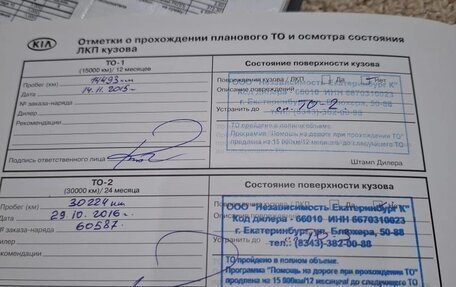 KIA
Отметки о прохождении планового ТО и осмотра состояния
ЛКП кузова
ТО-1
(15000 км)/ 12 месяцев
Состояние поверхности кузова
Пробег (км) 14493 км
Повреждения кузова / ЛКП Да Нет
Дата 14.11.2015г.
Описание повреждений
ООО "Независимость Екатеринбург К"
№ заказ-наряда
Код дилера - 66010 ИНН 6670310023
Дилер
г. Екатеринбург, ул. Блюхера, 50-88
Устранить до сл. ТО-2.
тел. (8343)-382-00-88
Рекомендации
ТО пройдено в полном объеме.
Программа "Помощь на дороге при прохождении ТО"
продлена на 15 000км/12 месяцев/ до следующего ТО
Подпись ответственного лица
Штамп Дилера
ТО-2
(30000 км) / 24 месяца
Состояние поверхности кузова
Пробег (км) 30224 км.
Повреждения кузова / ЛКП Да Нет
Дата 29.10.2016г.
ООО "Независимость Екатеринбург К"
№ заказ-наряда 60587
Код дилера - 66010 ИНН 6670310023
Дилер
г. Екатеринбург, ул. Блюхера, 50-88
тел. (8343)-382-00-88
Рекомендации
ТО пройдено в полном объеме.
Программа "Помощь на дороге при прохождении ТО"
продлена на 15 000км/12 месяцев/ до следующего ТО